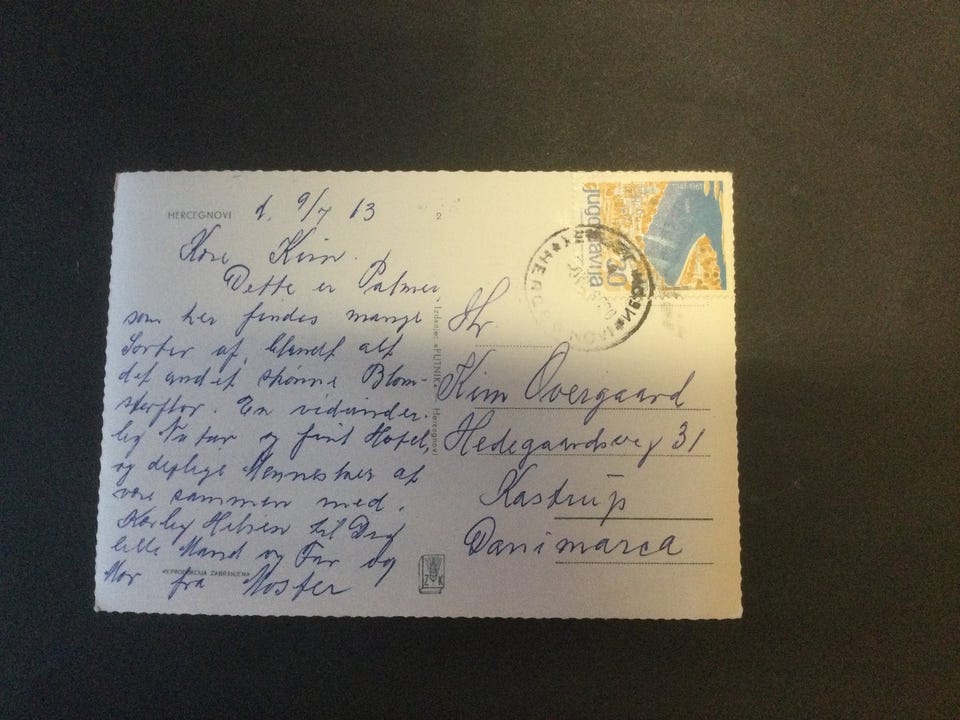 HERCEGNOVI
d. 9/7 63
2
Kære Kim.
Dette er Palmer,
som her findes mange
Sorter af, blandt alt
det andet skønne Blom-
sterflor. En vidunder-
lig Natur og fint Hotel,
og dejlige Mennesker at
være sammen med.
Kærlig Hilsen til Dig
lille Mand og Far og
Mor fra Moster
REPRODUKCIJA ZABRANJENA
Izdanje: »PUTNIK« – Hercegnovi
Z K
1941-1961
jugoslavija
20
Hr.
Kim Overgaard
Hedegaardsvej 31
Kastrup
Danimarca